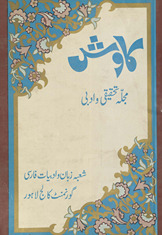 کاوش
مجلہ تحقیقی و ادبی
شعبہ زبان و ادبیات فارسی
گورنمنٹ کالج لاہور